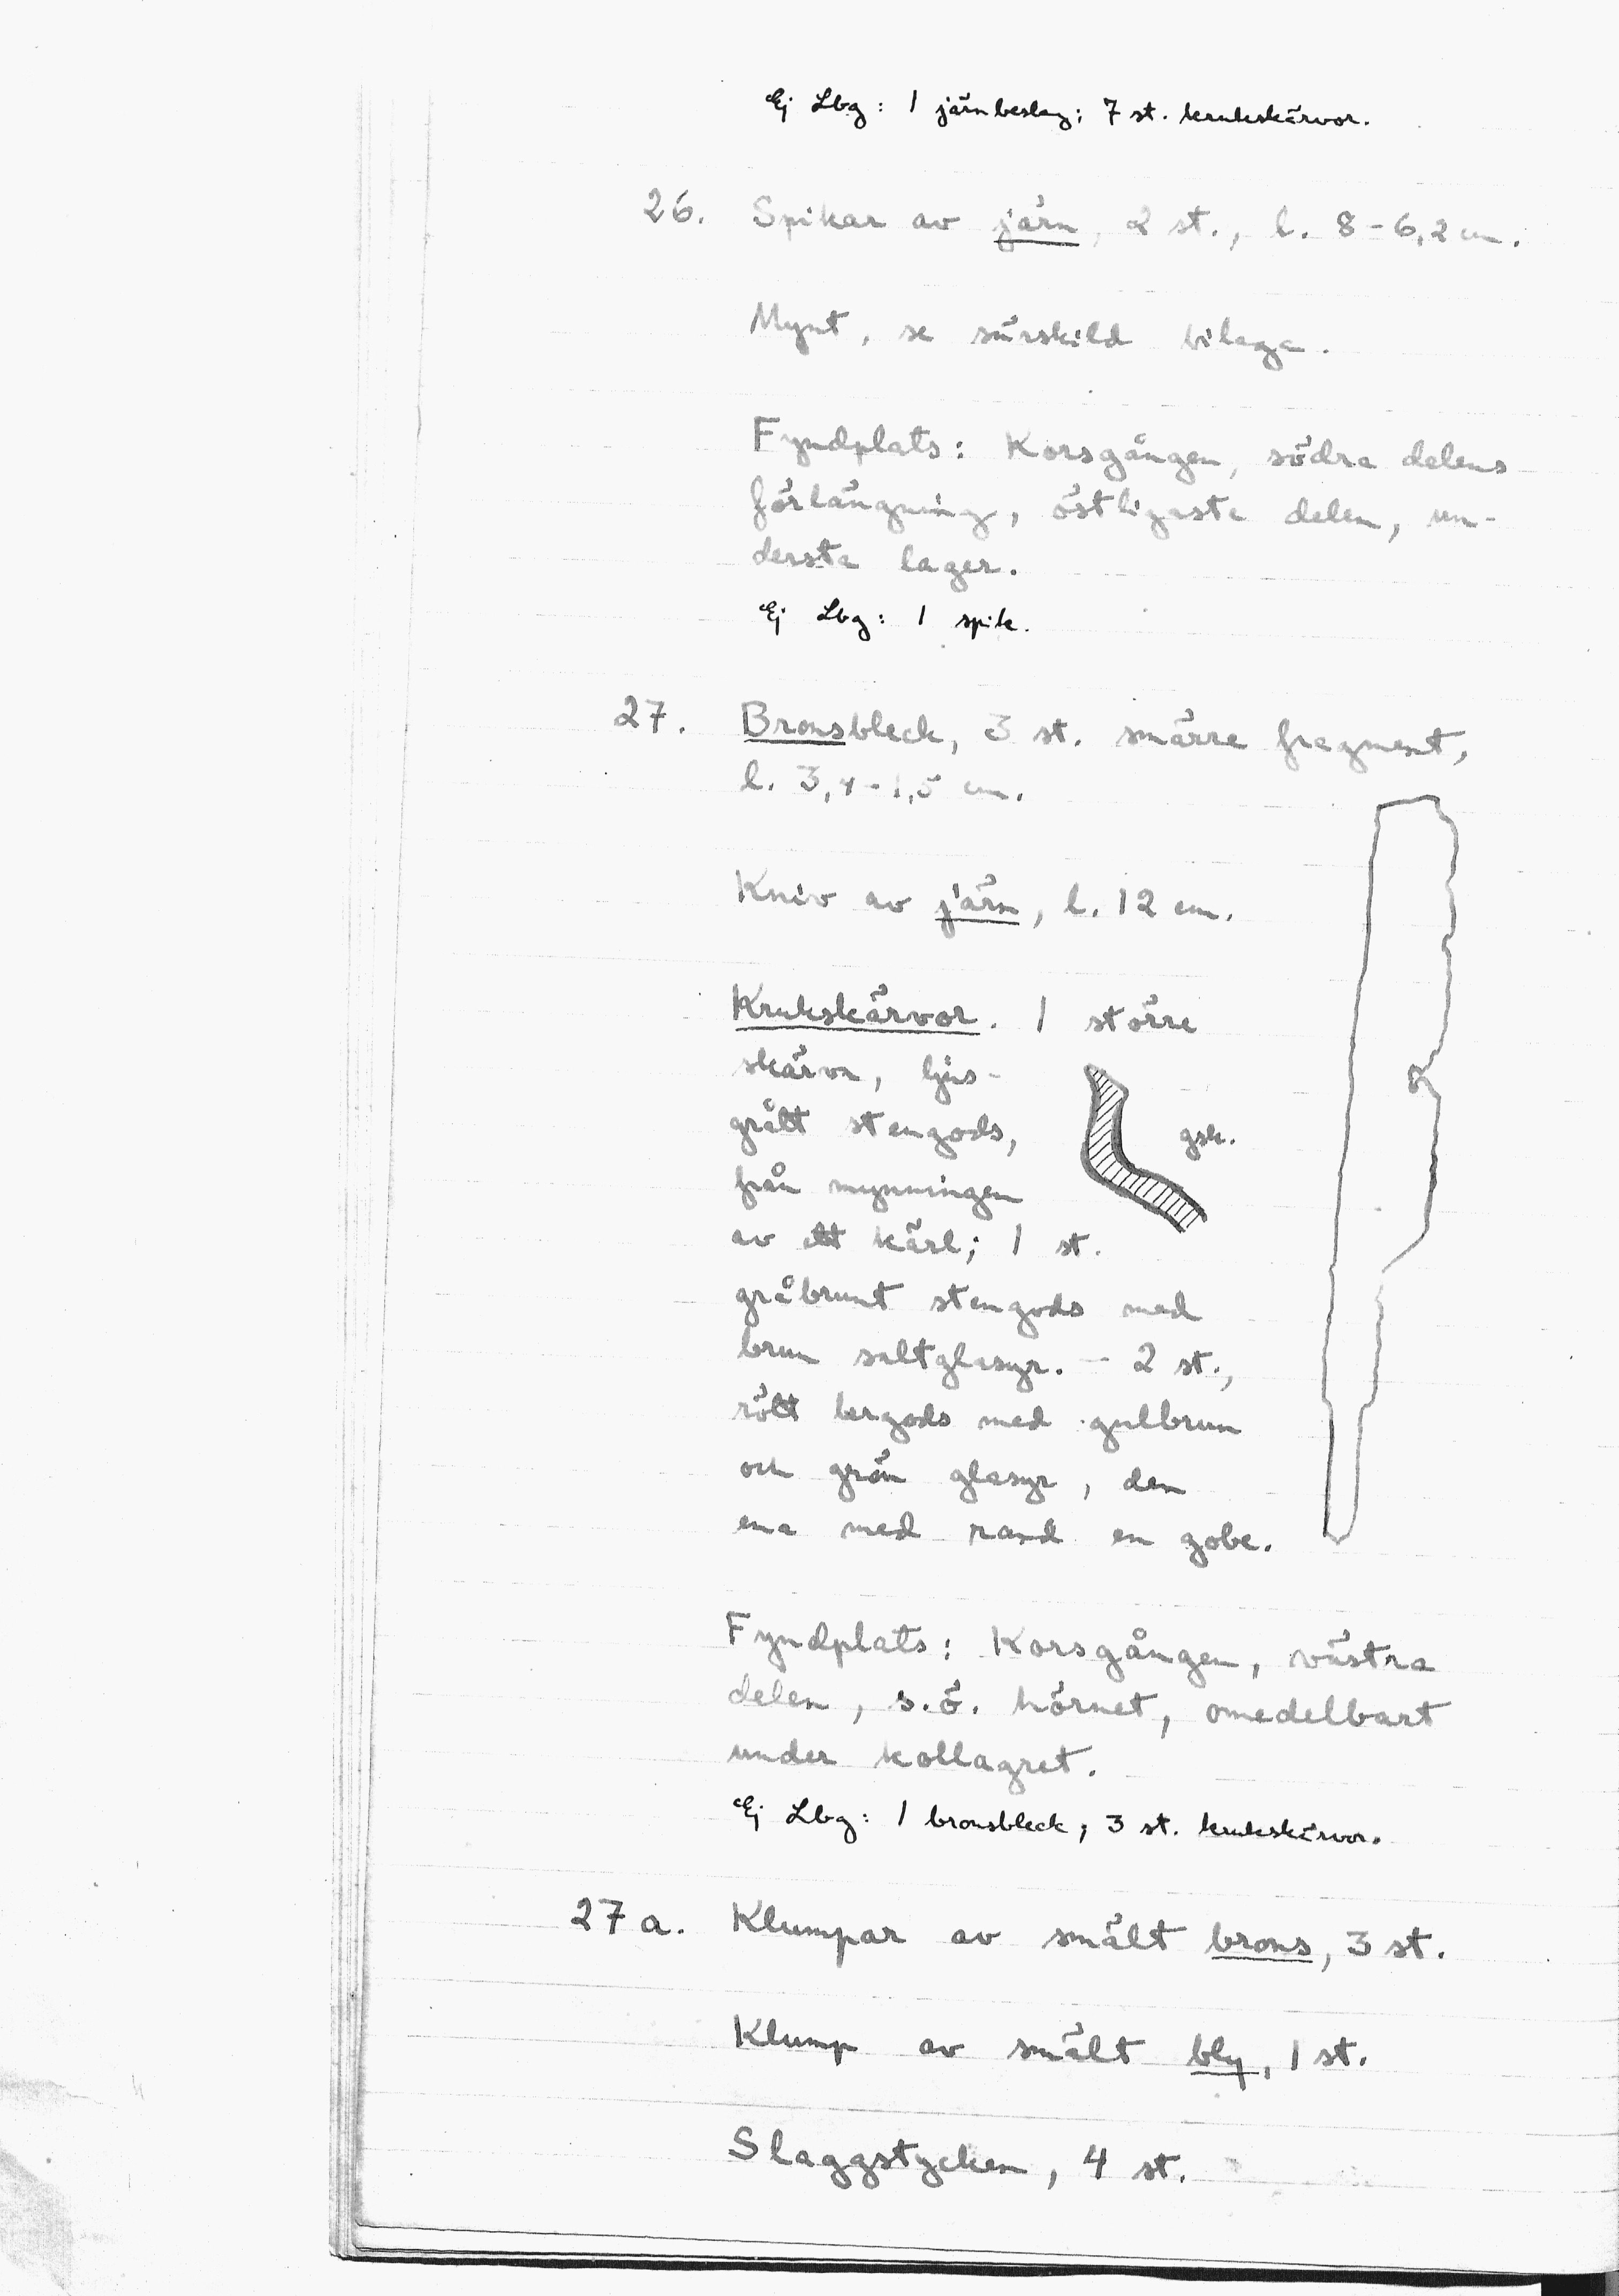 Ej Lbg: 1 järnbeslag; 7 st. krukskärvor.
26. Spikar av järn, 2 st., l. 8-6,2 cm.
Mynt, se särskild bilaga.
Fyndplats: Korsgången, södra delens
förlängning, östligaste delen, un-
dersta lager.
Ej Lbg: 1 spik.
27. Bronsbleck, 3 st. smärre fragment,
l. 3,4-1,5 cm.
Kniv av järn, l. 12 cm.
Krukskärvor. 1 större
skärva, ljus-
grått stengods,
gsk.
från mynningen
av ett kärl; 1 st.
gråbrunt stengods med
brun saltglasyr. - 2 st.,
rött lergods med gulbrun
och grön glasyr, den
ena med rand en gobe.
Fyndplats: Korsgången, västra
delen, s.ö. hörnet, omedelbart
under kollagret.
Ej Lbg: 1 bronsbleck; 3 st. krukskärvor.
27a. Klumpar av smält brons, 3 st.
Klump av smält bly, 1 st.
Slaggstycken, 4 st.